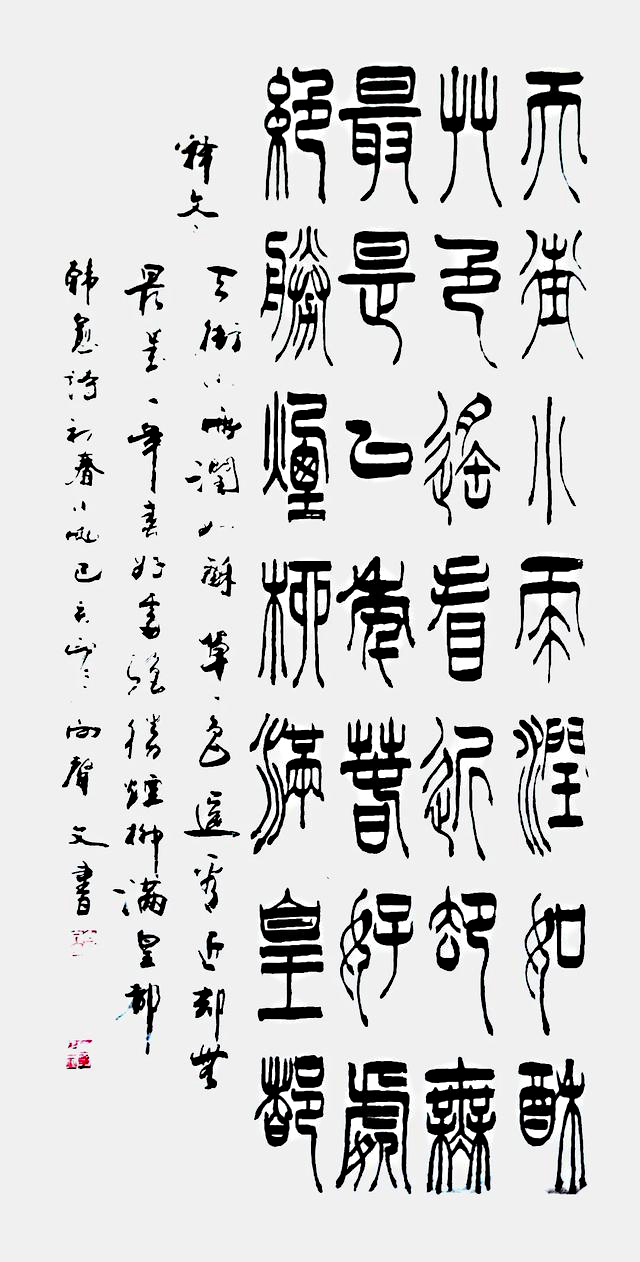 天街小雨潤如酥
艸色遙看近却無
最是一年春好處
絕勝煙柳滿皇都
释文
天街小雨潤如酥草色遥看近却無
最是一年春好處絕勝煙柳滿皇都
韓愈詩初春小雨己亥聲文書